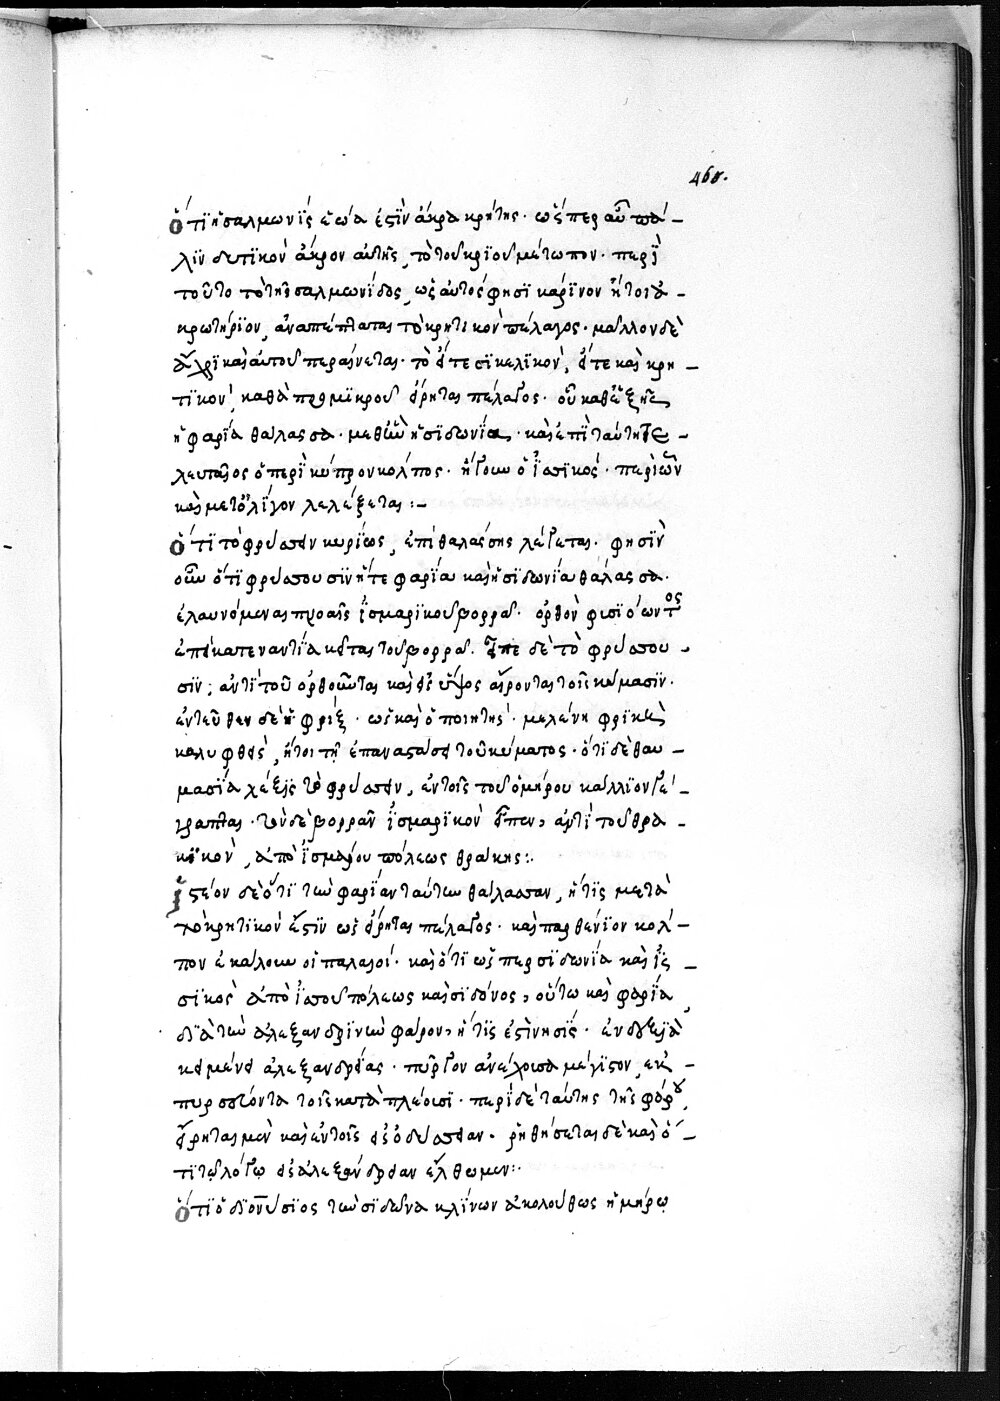 468.
ὅτι ἡ σαλμωνὶς ἑῴα ἐστὶν ἄκρα κρήτης· ὥσπερ αὖ πά-
λιν δυτικὸν ἄκρον αὐτῆς, τὸ τοῦ κριοῦ μέτωπον· περὶ
τοῦτο τὸ τῆς σαλμωνίδος, ὡς αὐτός φησι κάρηνον ἤτοι ἀ-
κρωτήριον, ἀναπέπταται τὸ κρητικὸν πέλαγος· μᾶλλον δὲ
ἄχρι καὶ αὐτοῦ περαίνεται· τό τε σικελικὸν, τό τε καὶ κρη-
τικὸν, καθὰ πρὸ μικροῦ εἴρηται πέλαγος· οὗ καθεξῆς
ἡ φαρία θάλασσα· μεθ' ἣν ἡ σιδωνία· καὶ ἐπὶ ταύτῃ τε-
λευταῖος ὁ περὶ κύπρον κόλπος· ἤγουν ὁ ἰσσικός· περὶ ὧν
καὶ μετ' ὀλίγον λελέξεται:-
ὅτι τὸ φρύσσειν κυρίως, ἐπὶ θαλάσσης λέγεται· φησὶν
οὖν ὅτι φρύσσουσιν ἥ τε φαρία καὶ ἡ σιδωνία θάλασσα·
ἐλαυνόμεναι πνοαῖς ἰσμαρικοῦ βορρᾶ· ὀρθὸν φυσιόωντος
ἐπεὶ κατεναντία κεῖται τοῦ βορρᾶ. εἶπε δὲ τὸ φρύσσου-
σιν; ἀντὶ τοῦ ὀρθοῦνται καὶ εἰς ὕψος αἴρονται τοῖς κύμασιν·
ἐντεῦθεν δὲ ἡ φρίξ· ὡς καὶ ὁ ποιητής· μελαίνῃ φρικὶ
καλυφθεὶς, ἤτοι τῇ ἐπαναστάσει τοῦ κύματος· ὅτι δὲ θαυ-
μασία λέξις τὸ φρύσσειν, ἐν τοῖς τοῦ ὁμήρου κάλλιον γέ-
γραπται· τὸν δὲ βορρᾶν ἰσμαρικὸν εἶπεν, ἀντὶ τοῦ θρα-
κικὸν, ἀπὸ ἰσμάρου πόλεως θράκης:.
ἰστέον δὲ ὅτι τὴν φαρίαν ταύτην θάλασσαν, ἥτις μετὰ
τὸ κρητικόν ἐστιν ὡς εἴρηται πέλαγος· καὶ παρθένιον κόλ-
πον ἐκάλουν οἱ παλαιοί· καὶ ὅτι ὥσπερ σιδωνία καὶ ἰσ-
σικὸς ἀπὸ ἰσσοῦ πόλεως καὶ σιδόνος, οὕτω καὶ φαρία
διὰ τὴν ἀλεξανδρινὴν φάρον, ἥτις ἐστὶ νησὶς· ἐν δεξιᾷ
κειμένη ἀλεξανδρείας· πύργον ἀνέχουσα μέγιστον, ἐκ-
πυρσεύοντα τοῖς κατὰ πλέουσι· περὶ δὲ ταύτης τῆς φάρου,
εἴρηται μὲν καὶ ἐν τοῖς εἰς ὀδύσσειαν· ῥηθήσεται δὲ καὶ ὅ-
τι τῷ λόγῳ εἰς ἀλεξάνδρειαν ἔλθωμεν:·
ὅτι ὁ διονύσιος τὴν σιδῶνα κλίνων ἀκολούθως ὁμήρῳ